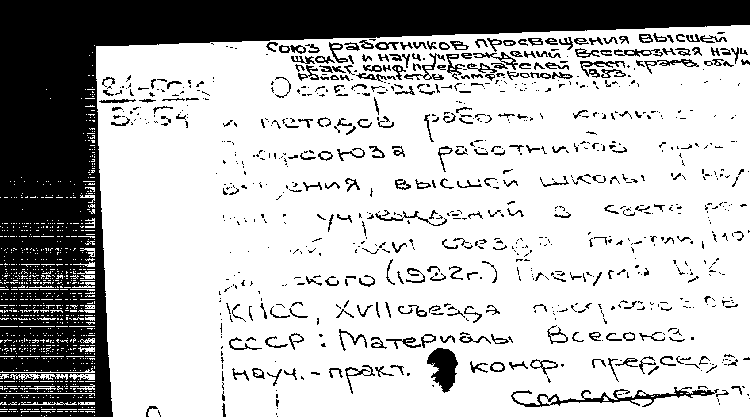 Союз работников просвещения высшей
школы и науч. учреждений. Всесоюзная науч
практ. конф. председателей респ., краев., обл. и
район. комитетов. Симферополь. 1983.
О совершенствовании
и методов работы комит
Профсоюза работников
высшей школы и нау
учреждений в свете ре
XXVI съезда партии, но
ского (1982г.) Пленума ЦК
КПСС, XVII съезда профсоюзов
СССР: Материалы Всесоюз.
науч.-практ. конф. председа-
См. след. карт.